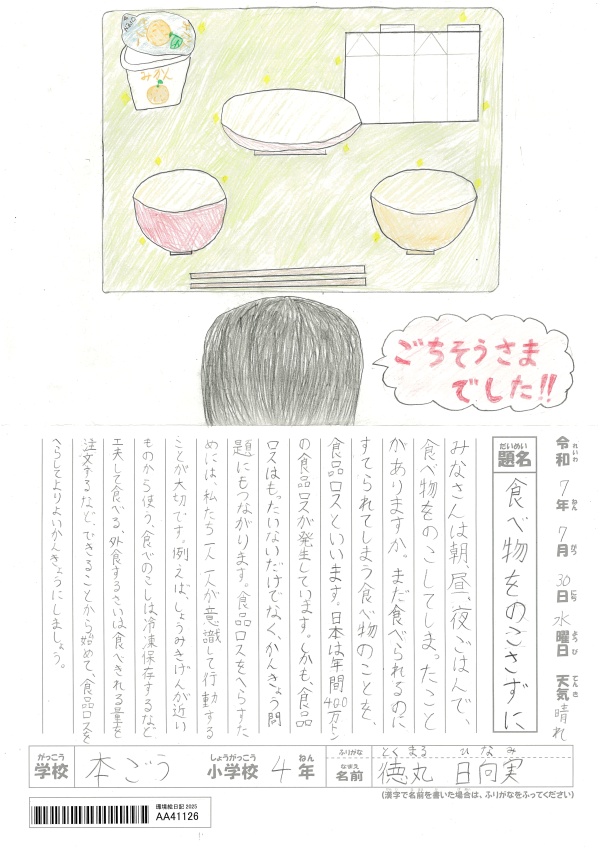 みかん
ごちそうさま
でした!!
令和7年7月30日水曜日 天気 晴れ
れいわ ねん がつ にち ようび てんき
だいめい
題名 食べ物をのこさずに
みなさんは朝、昼、夜ごはんで、
食べ物をのこしてしまったこと
がありますか。まだ食べられるのに
すてられてしまう食べ物のことを、
食品ロスといいます。日本は年間400万トン
の食品ロスが発生しています。しかも、食品
ロスはもったいないだけでなく、かんきょう問
題にもつながります。食品ロスをへらすた
めには、私たち一人一人が意識して行動する
ことが大切です。例えば、しょうみきげんが近い
ものから使う、食べのこしは冷凍保存するなど
工夫して食べる、外食するさいは食べきれる量を
注文するなど、できることから始めて、食品ロスを
へらしてよりよいかんきょうにしましょう。
がっこう しょうがっこう ねん ふりがな とくまる ひなみ
学校 本ごう 小学校 4年 なまえ 名前 徳丸 日向実
(漢字で名前を書いた場合は、ふりがなをふってください)
環境絵日記2025
AA41126